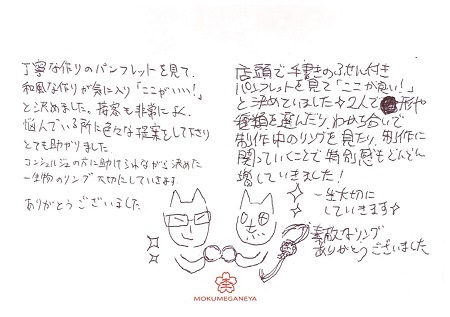 丁寧な作りのパンフレットを見て、
和風な作りが気に入り「ここがいい!」
と決めました。接客も非常によく、
悩んでいる所に色々な提案もして下さり
とても助かりました。
コンシェルジュの方に助けられながら決めた
一生物のリング 大切にしていきます
ありがとうございました
店頭で手書きのふせん付き
パンフレットを見て「ここが良い!」
と決めていました☆2人で形や
種類を選んだり、わめち合いで
制作中のリングを見たり、制作に
関っていくことで特別感もどんどん
増していきました!
一生大切に
していきます☆
素敵なリング
ありがとうございました
MOKUMEGANEYA